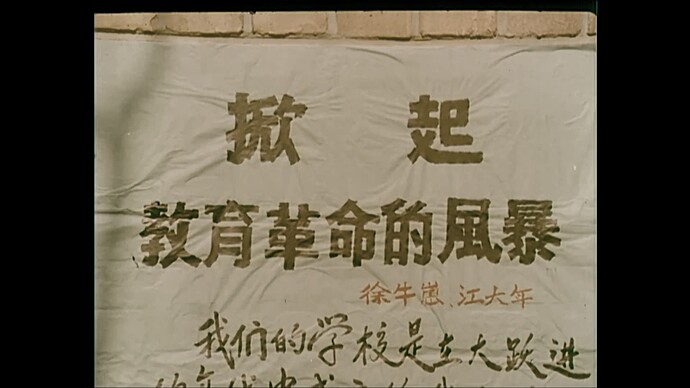 掀起
教育革命的風暴
徐牛崽、江大年
我们的学校是在大跃进
的年代中